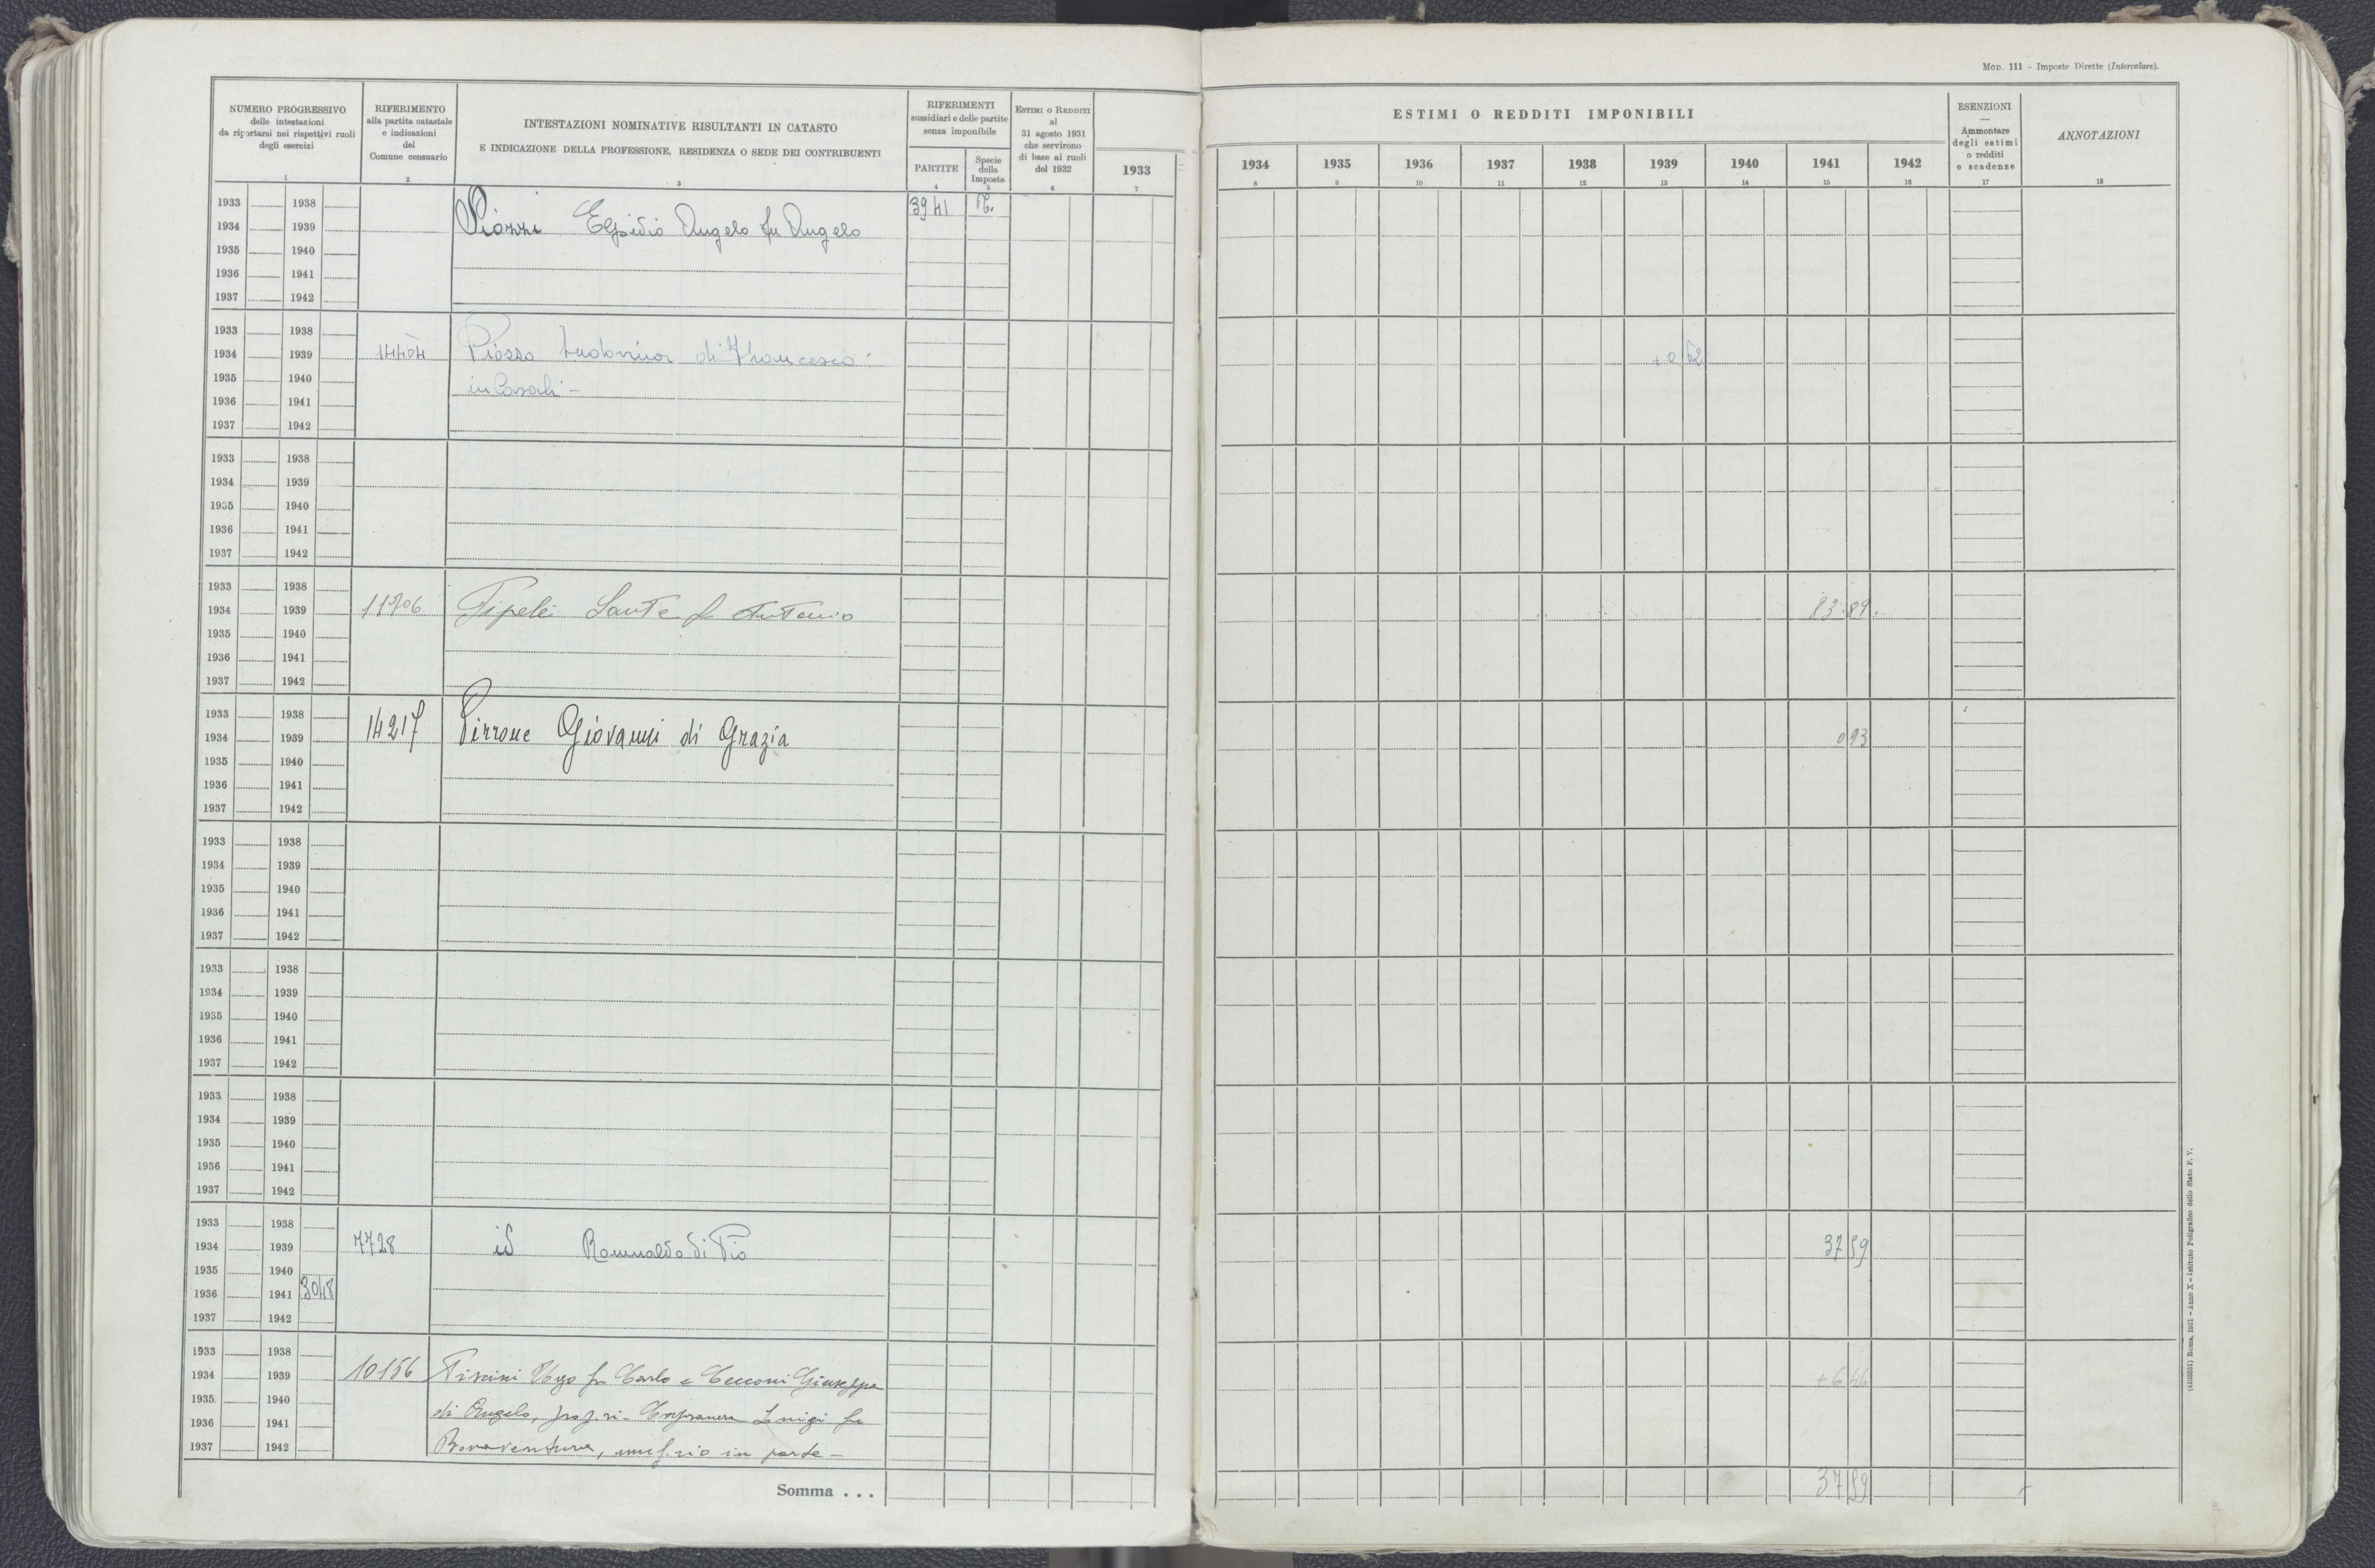 MOD. 111 - Imposte Dirette (Intercalare).
NUMERO PROGRESSIVO
delle intestazioni
da riportarsi nei rispettivi ruoli
degli esercizi
1
RIFERIMENTO
alla partita catastale
e indicazioni
del
Comune censuario
2
INTESTAZIONI NOMINATIVE RISULTANTI IN CATASTO
E INDICAZIONE DELLA PROFESSIONE, RESIDENZA O SEDE DEI CONTRIBUENTI
3
RIFERIMENTI
sussidiari e delle partite
senza imponibile
PARTITE
4
Specie
della
Imposta
5
ESTIMI O REDDITI
al
31 agosto 1931
che servirono
di base ai ruoli
del 1932
6
1933
7
ESTIMI O REDDITI IMPONIBILI
1934 1935 1936 1937 1938 1939 1940 1941 1942
8 9 10 11 12 13 14 15 16
ESENZIONI
—
Ammontare
degli estimi
o redditi
e scadenze
17
ANNOTAZIONI
18
1933 1938 3941
1934 1939 Piozzi Egidio Angelo fu Angelo
1935 1940
1936 1941
1937 1942
1933 1938
1934 1939 Piozzo Ludovica di Francesco +0 62
1935 1940 in Casali -
1936 1941
1937 1942
1933 1938
1934 1939
1935 1940
1936 1941
1937 1942
1933 1938
1934 1939 Sante Antonio 83.89.
1935 1940
1936 1941
1937 1942
1933 1938
1934 1939 14217 Pirrone Giovanni di Grazia 0 93
1935 1940
1936 1941
1937 1942
1933 1938
1934 1939
1935 1940
1936 1941
1937 1942
1933 1938
1934 1939
1935 1940
1936 1941
1937 1942
1933 1938
1934 1939
1935 1940
1936 1941
1937 1942
1933 1938
1934 1939 7728 id Romualdo di Pio 37 59
1935 1940
1936 1941 3048
1937 1942
1933 1938
1934 1939 10156 Piscini Ugo fu Carlo e Cecconi Giuseppe +6 46
1935 1940
1936 1941 di Angelo, prop. ri - Luigi fu
1937 1942 Bonaventura, usuf. rio in parte -
Somma . . . 37 59
(4103531) Roma, 1931 - Anno X - Istituto Poligrafico dello Stato P. V.